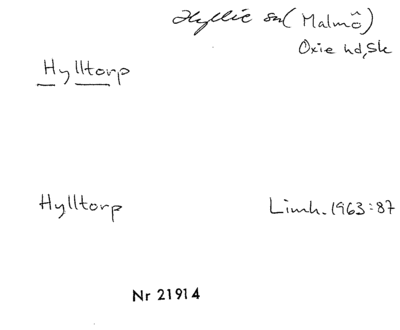 Hyllie sn (Malmö)
Oxie hd, Sk
Hylltorp
Hylltorp
Limh. 1963:87
Nr 21914